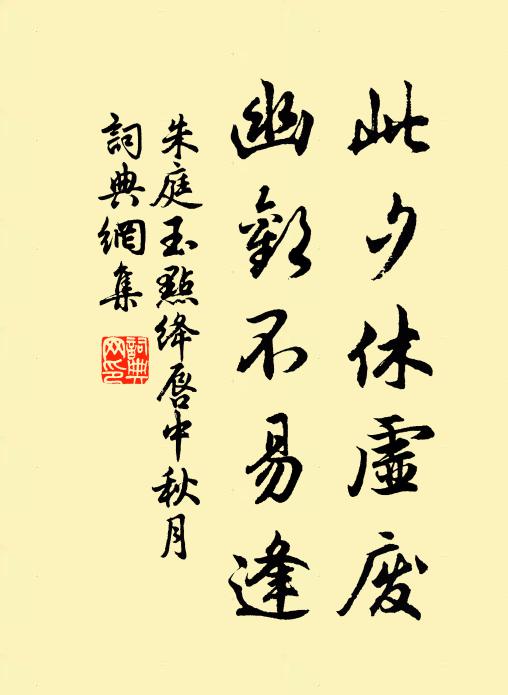 此夕休虛廢
幽歡不易逢
朱庭玉點絳唇中秋月
詞典網集
詞典网印